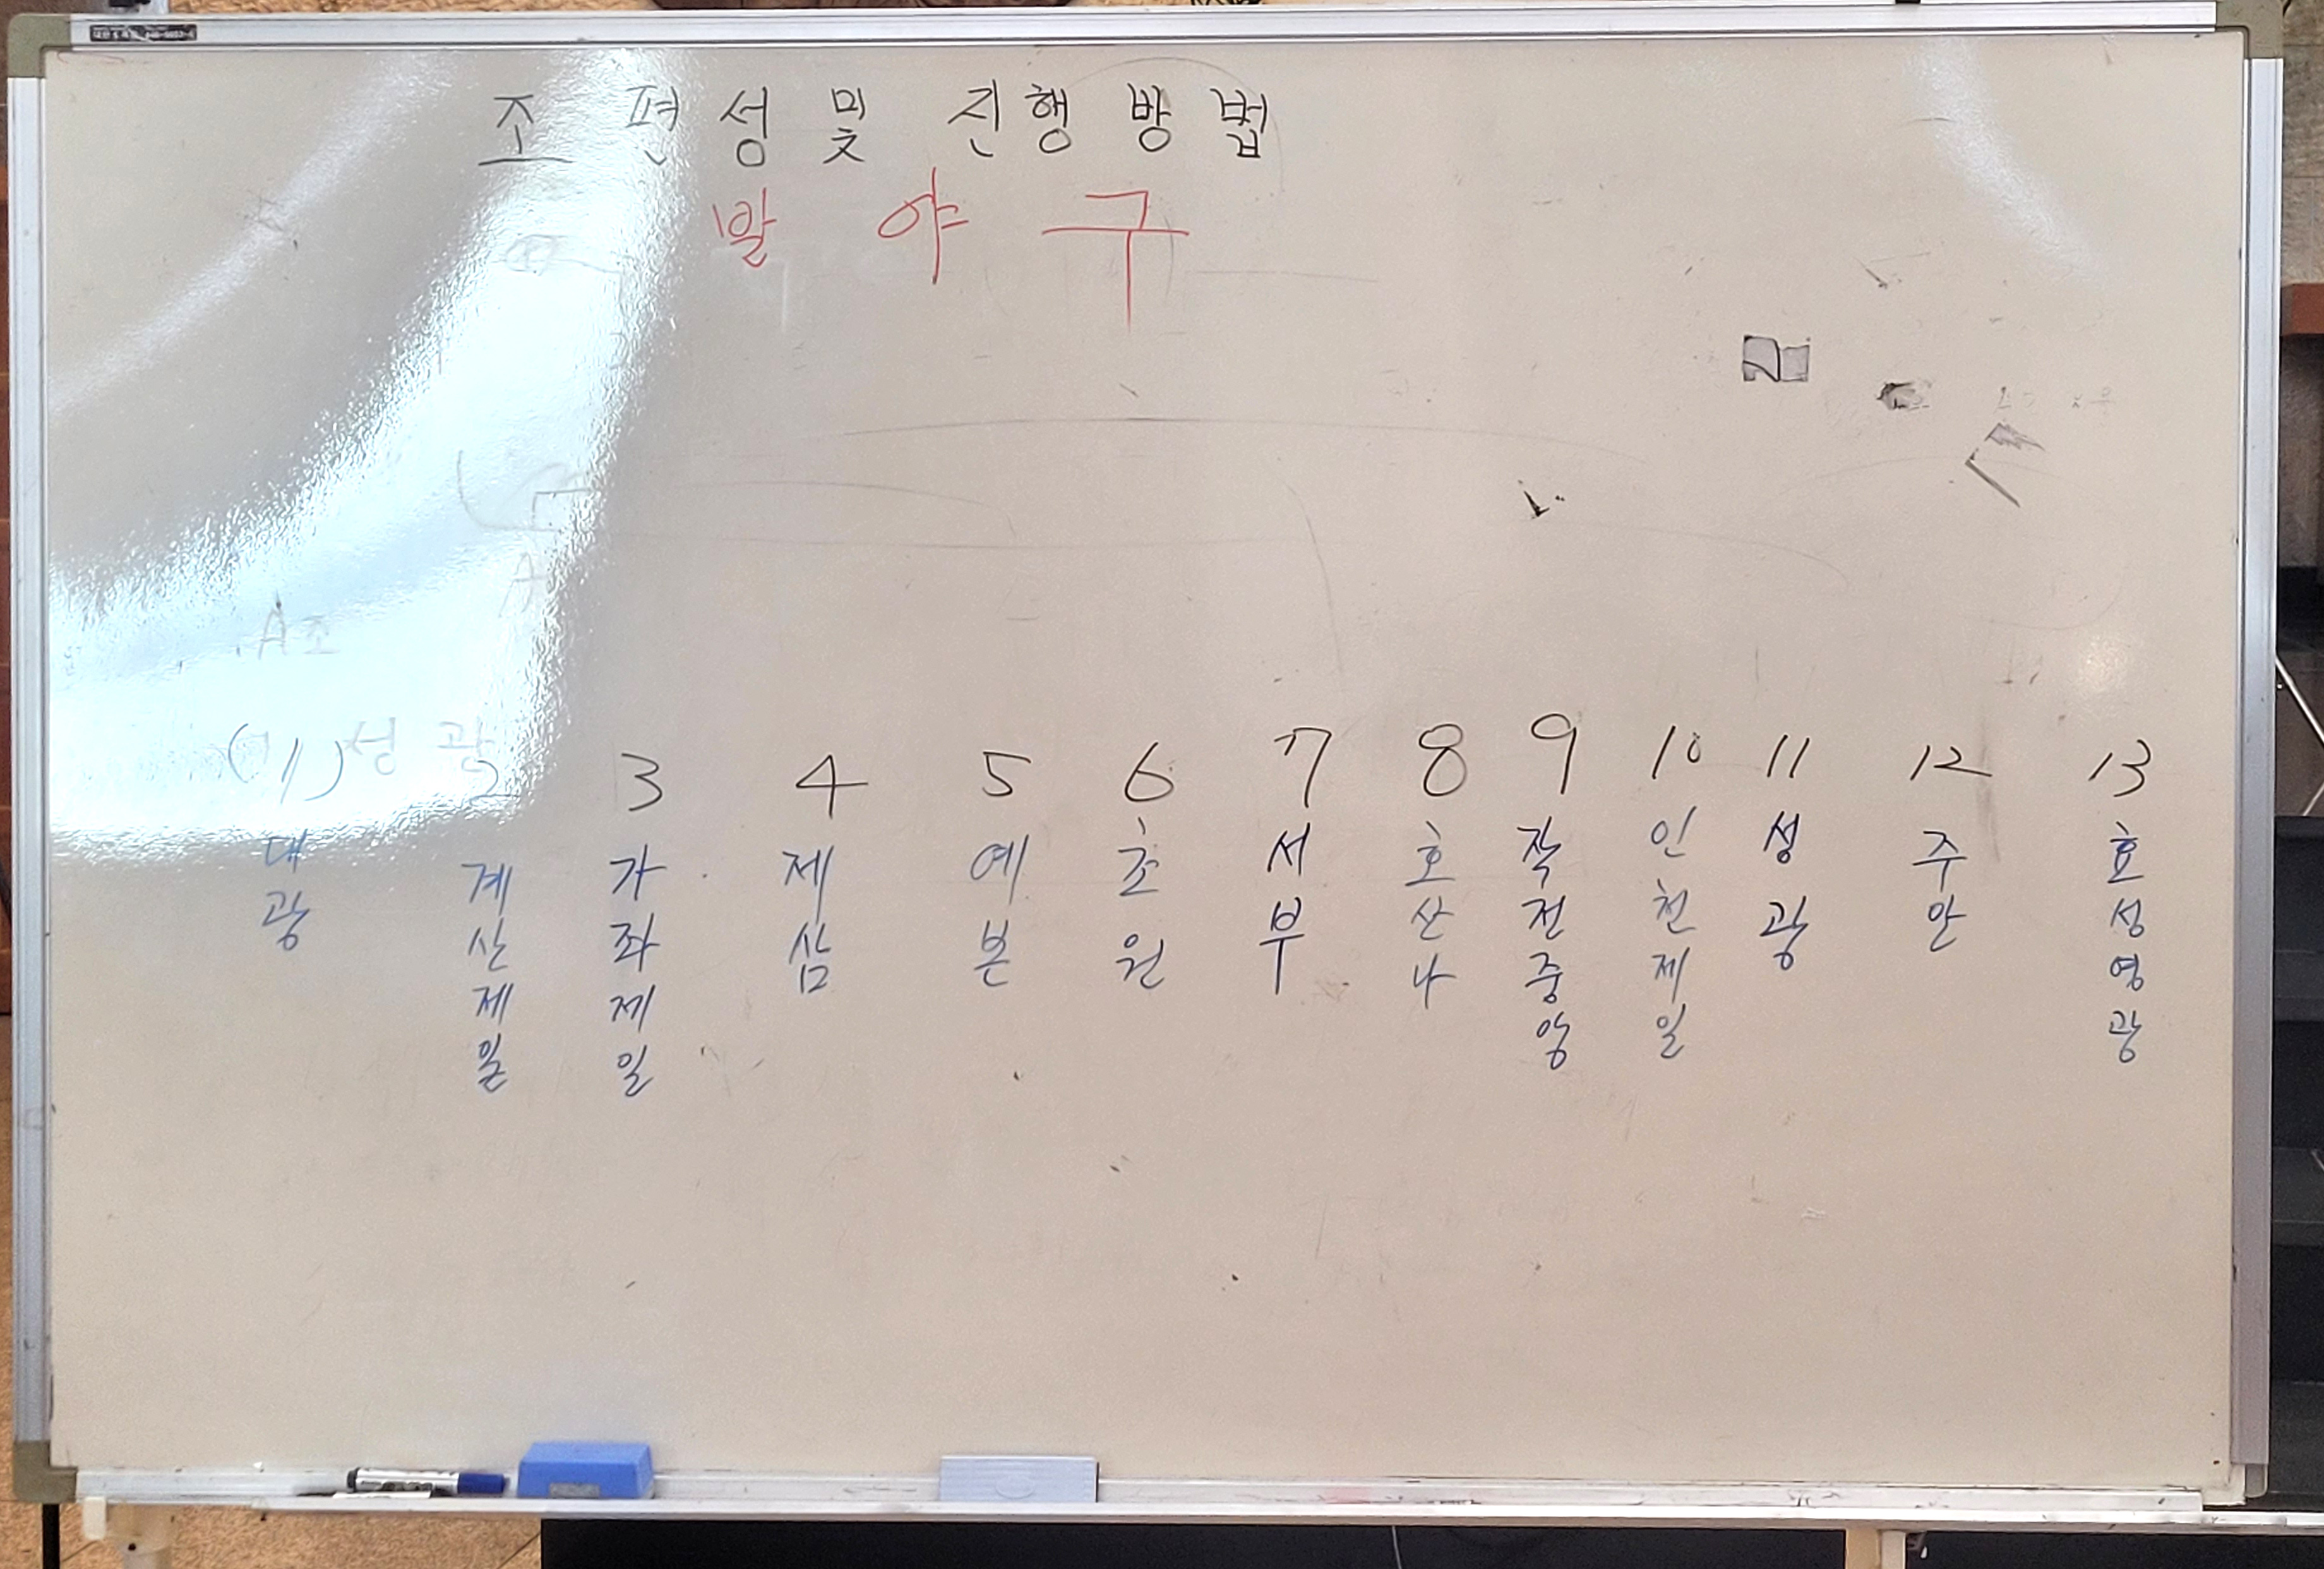 조 편성 및 진행 방법
발 야 구
A
A조
(1) 성광
2
3
4
5
6
7
8
9
10
11
12
13
대광
계산제일
가좌제일
제삼
예본
초원
서부
호산나
작전중앙
인천제일
성광
주안
효성영광